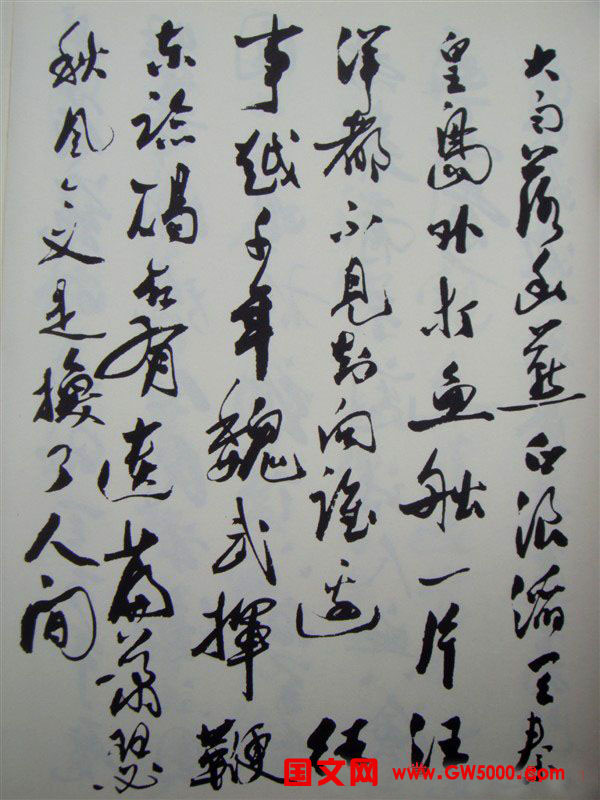 大雨落幽燕白浪滔天秦
皇島外打魚船一片汪
洋都不見知向誰邊往
事越千年魏武揮鞭
东臨碣石有遺篇蕭瑟
秋風今又是換了人间
国文网 www.GW5000.com